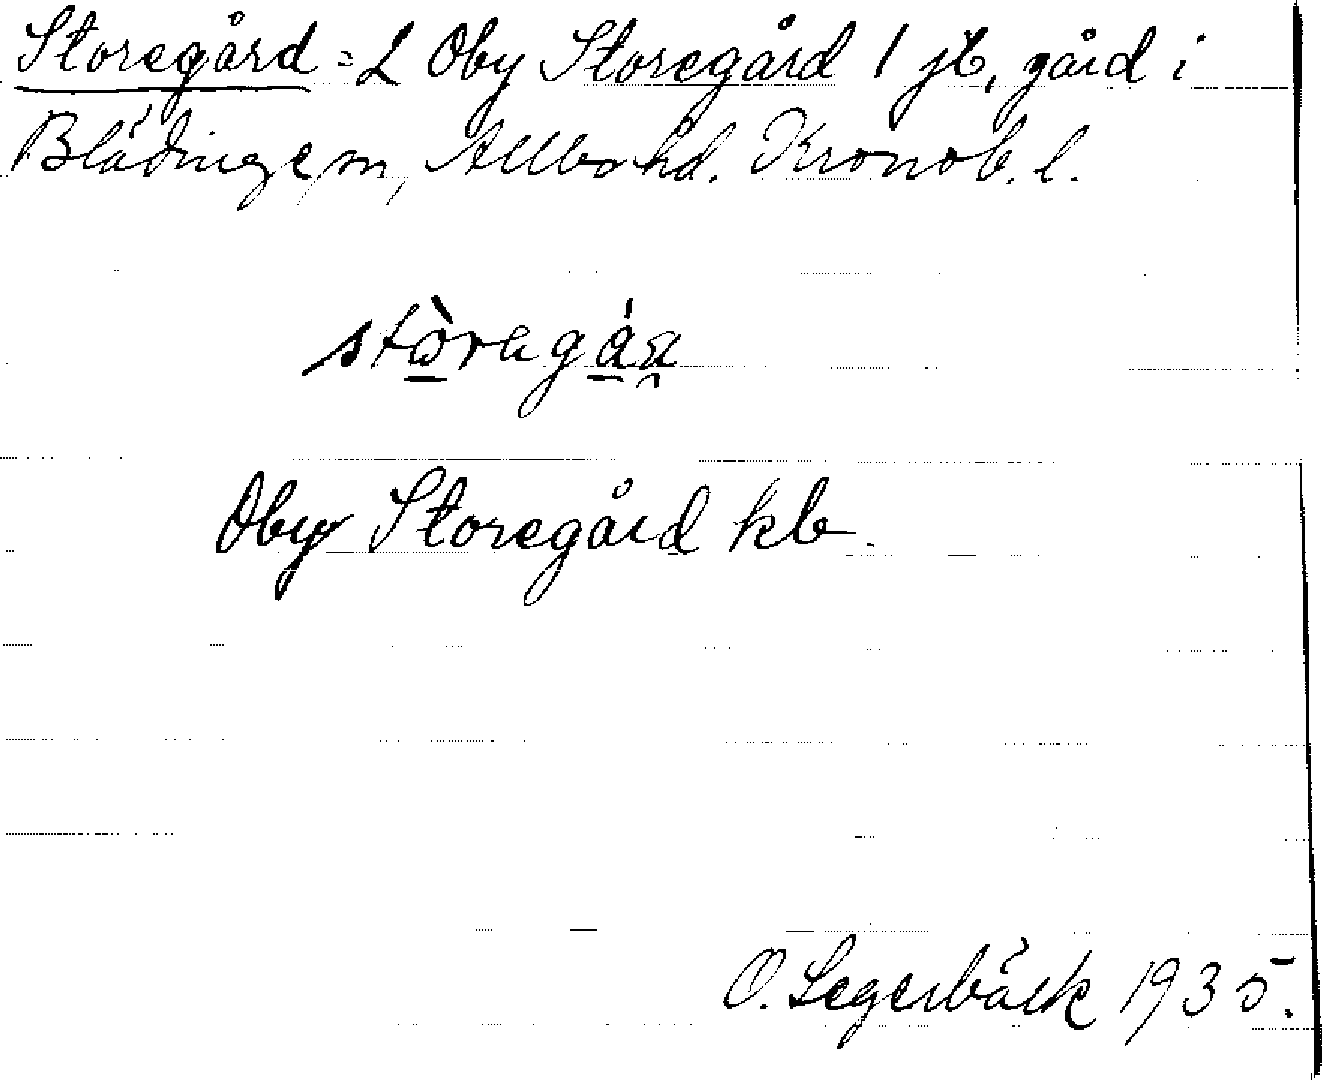 Storegård = L Oby Storegård 1 jb, gård i
Blädinge sn, Allbo hd. Kronob. l.
Oby Storegård kb.
O. Segerbäck 1935.